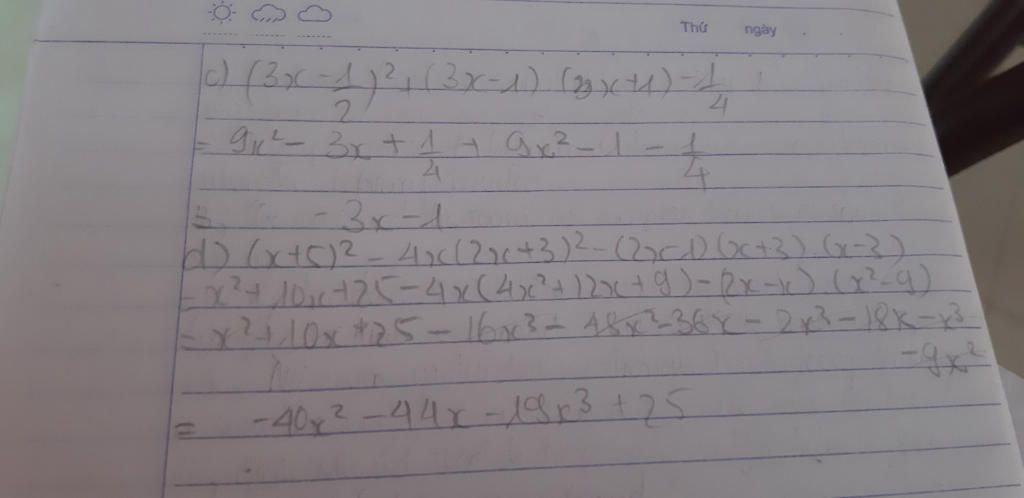 Thứ ngày
c) (3x - 1/2)² + (3x - 1) (3x + 1) - 1/4
= 9x² - 3x + 1/4 + 9x² - 1 - 1/4
= - 3x - 1
d) (x+5)² - 4x(2x+3)² - (2x-1)(x+3) (x-3)
= x² + 10x + 25 - 4x(4x² + 12x + 9) - (2x - x) (x² - 9)
= x² + 10x + 25 - 16x³ - 48x² - 36x - 2x³ - 18x - x³
- 9x²
= -40x² - 44x - 19x³ + 25